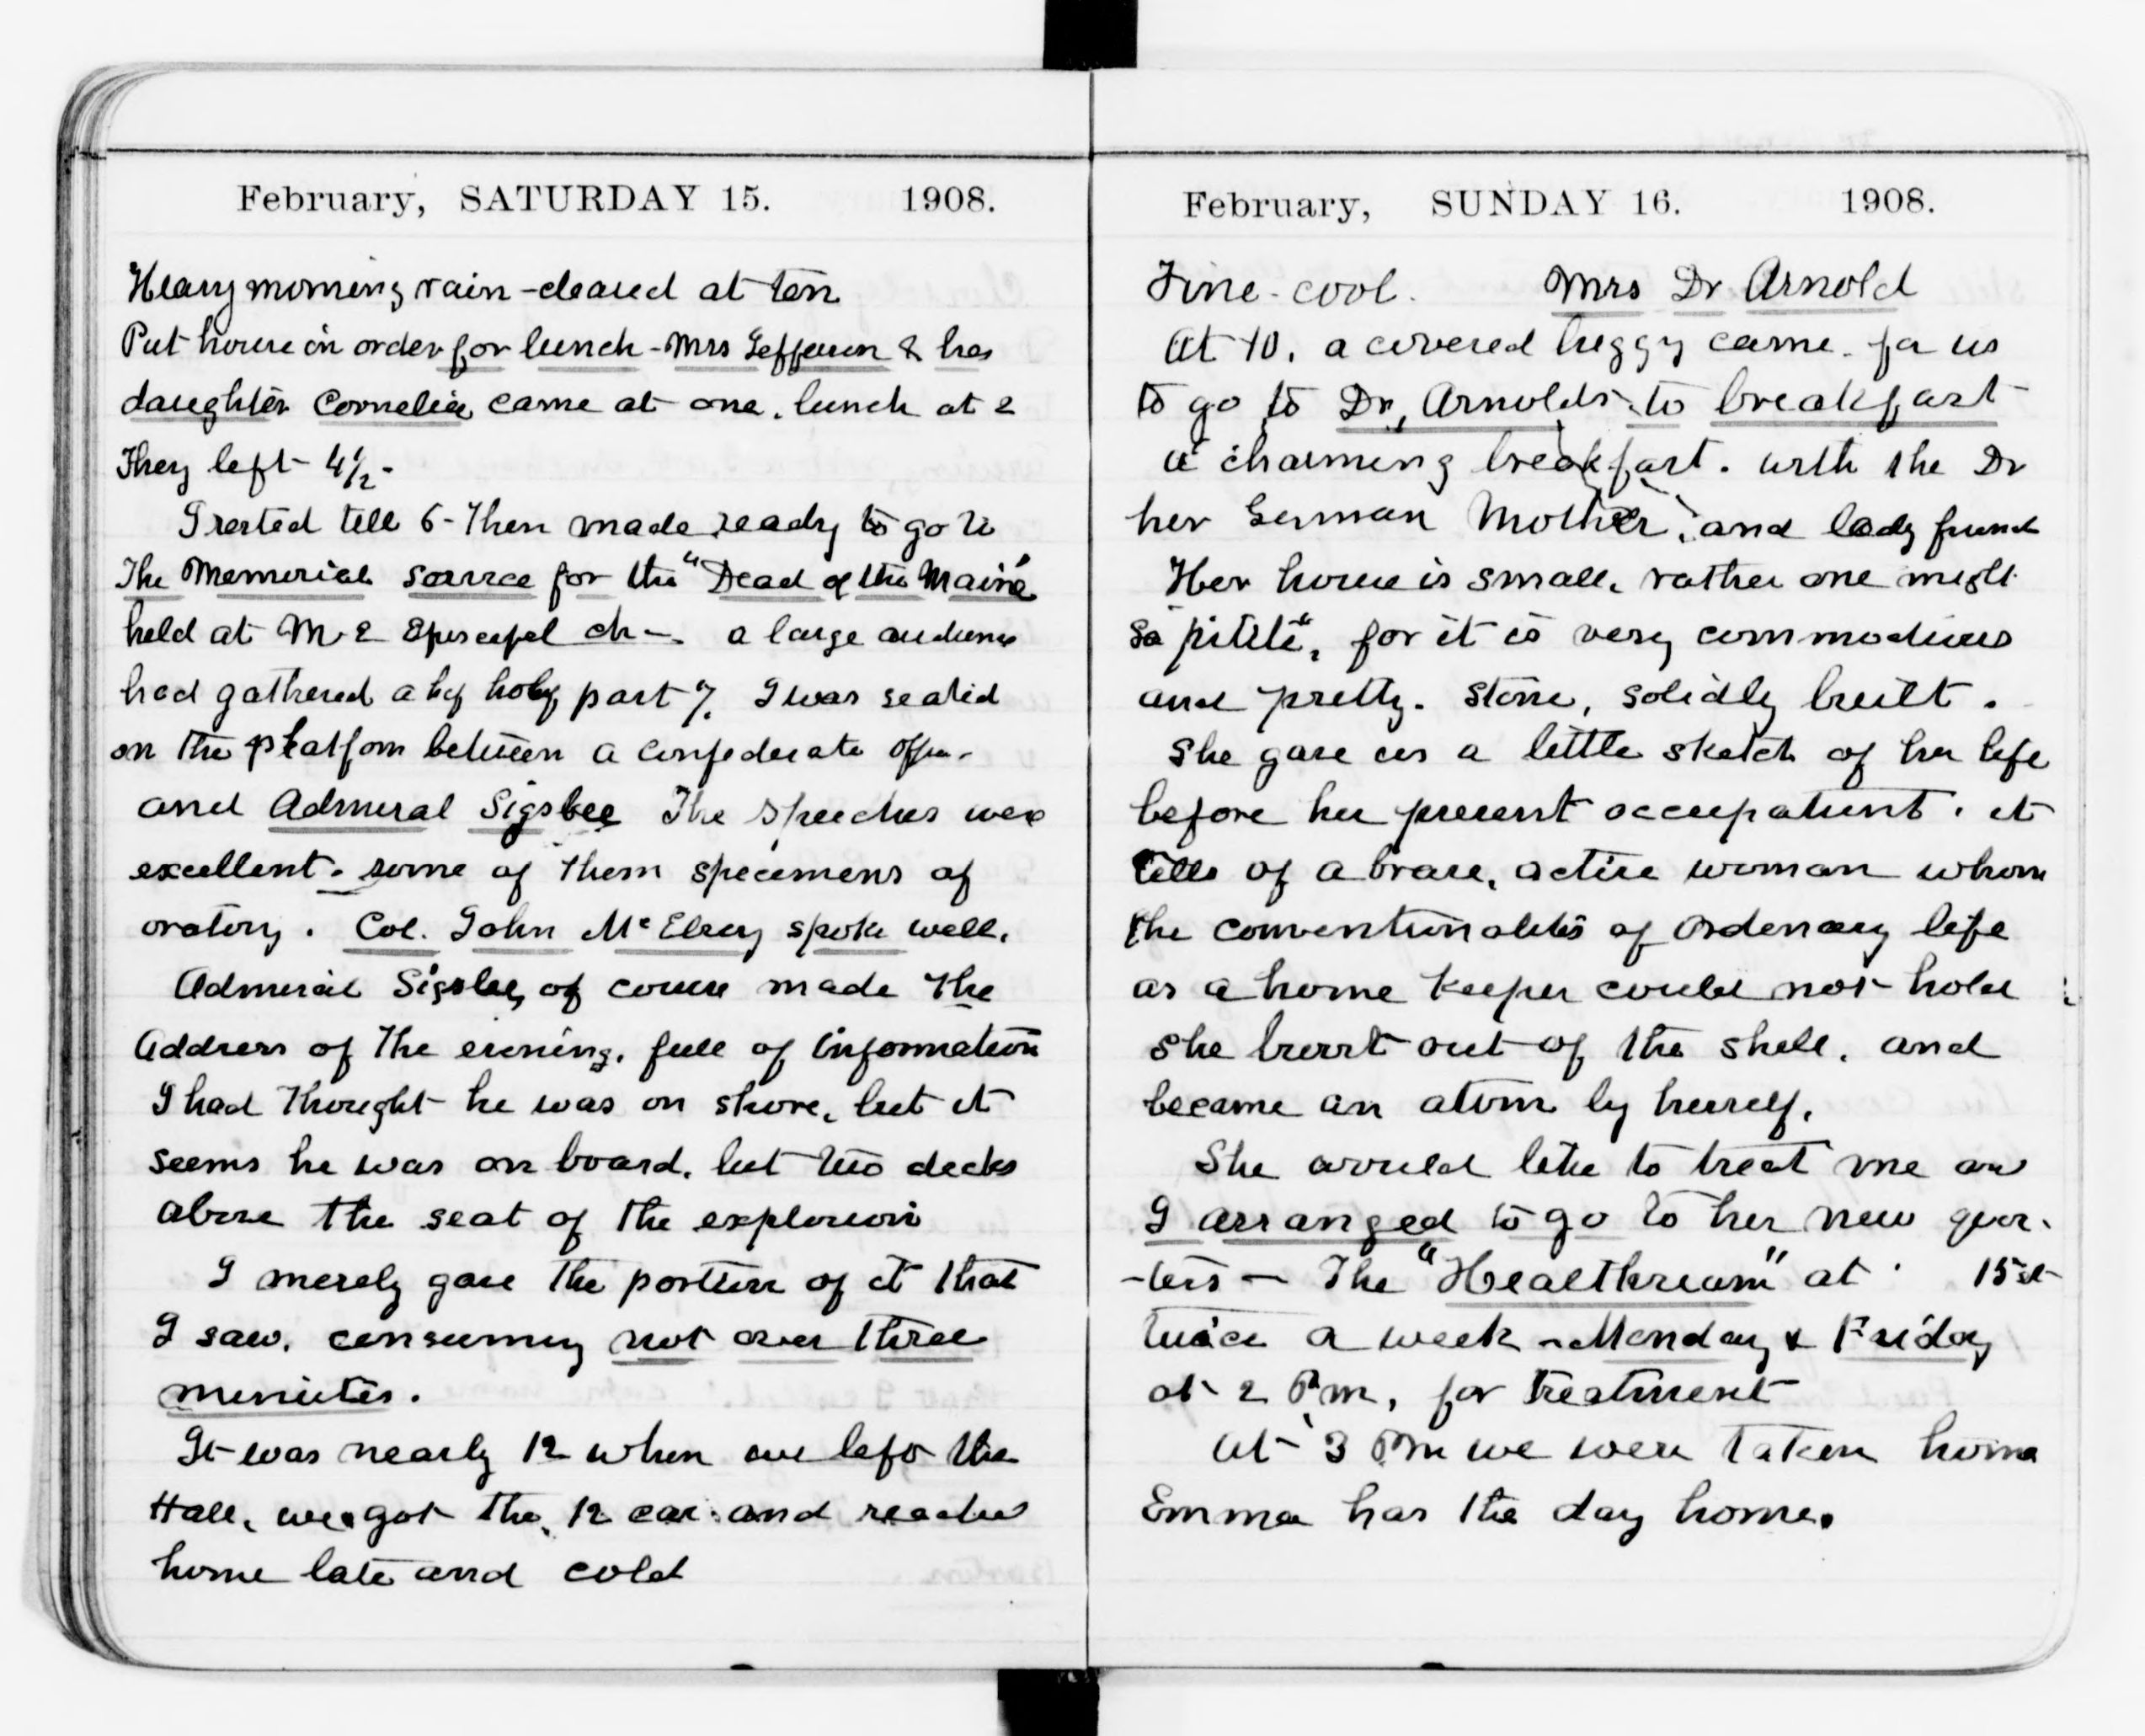 February, SATURDAY 15. 1908.
Heavy morning rain - cleared at ten
Put house in order for lunch - Mrs Jefferson & her
daughter Cornelia came at one. lunch at 2
They left 4½ -
I rested till 6 - Then made ready to go to
The Memorial Service for the "Dead of the Maine"
held at M. E Episcopal ch -. a large audience
had gathered a by half past 7. I was seated
on the platform between a Confederate offi-
and Admiral Sigsbee The speeches were
excellent. some of them specimens of
oratory. Col. John McElroy spoke well.
Admiral Sigsbee, of course made the
Address of The evening. full of information
I had Thought he was on shore, but it
seems he was on board. but two decks
above the seat of the explosion
I merely gave the portion of it that
I saw. consuming not over three
minutes.
It was nearly 12 when we left the
Hall, we got the 12 car. and reached
home late and cold
February, SUNDAY 16. 1908.
Fine - cool. Mrs Dr Arnold
At 10. a covered buggy came. for us
to go to Dr, Arnolds to breakfast
a charming breakfast. with the Dr
her German Mother, and lady friend
Her house is small, rather one might
sa "petite", for it is very commodious
and pretty. Stone, solidly built.
She gave us a little sketch of her life
before her present occupations. it
tells of a brave, active woman whom
the conventionalities of ordenary life
as a home keeper could not hold
she burst out of the shell, and
became an atom by herself.
She would like to treat me and
I arranged to go to her new quar-
-ters - The "Healthrium" at 15 st
twice a week - Monday & Friday
at 2 PM, for treatment
At 3 PM we were taken home
Emma has the day home.